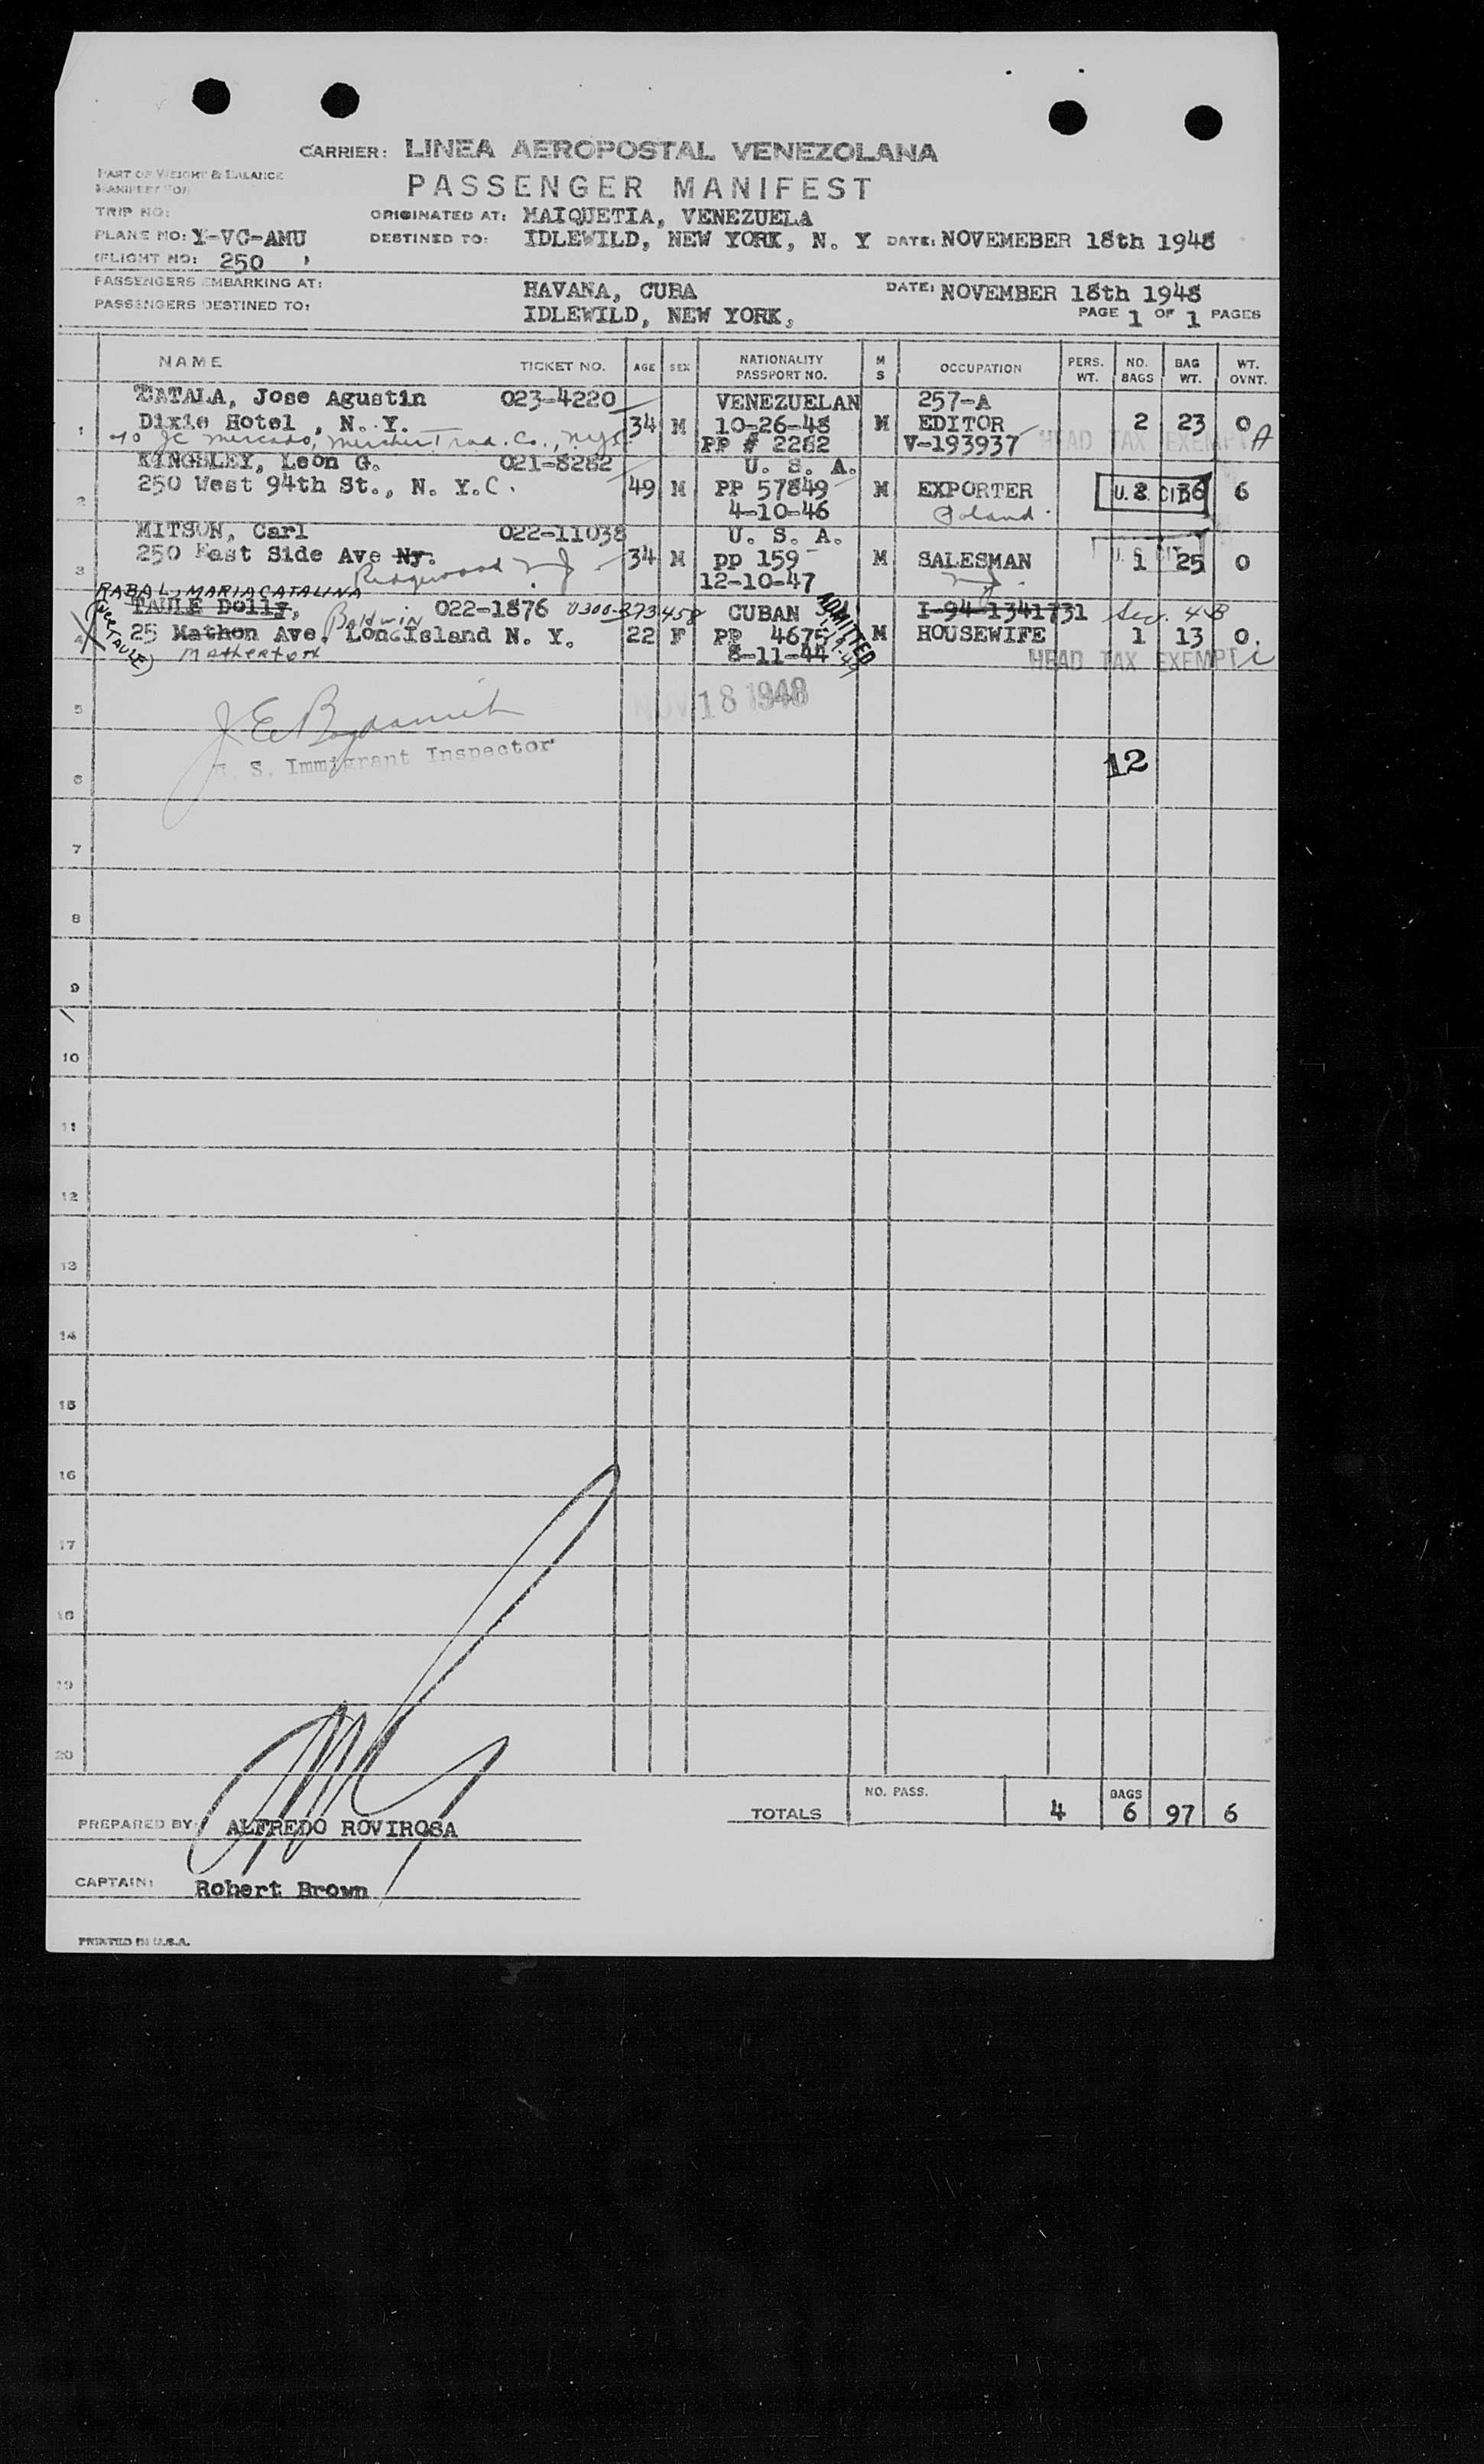 CARRIER: LINEA AEROPOSTAL VENEZOLANA
PART OF WEIGHT & BALANCE
MANIFEST FOR
PASSENGER MANIFEST
TRIP NO:
ORIGINATED AT: MAIQUETIA, VENEZUELA
PLANE NO: Y-VC-AMU
DESTINED TO: IDLEWILD, NEW YORK, N. Y DATE: NOVEMEBER 18th 1948
FLIGHT NO: 250
PASSENGERS EMBARKING AT: HAVANA, CUBA DATE: NOVEMBER 18th 1948
PASSENGERS DESTINED TO: IDLEWILD, NEW YORK,
PAGE 1 OF 1 PAGES
NAME TICKET NO. AGE SEX NATIONALITY PASSPORT NO. M S OCCUPATION PERS. WT. NO. BAGS BAG WT. WT. OVNT.
CATALA, Jose Agustin 023-4220 VENEZUELAN 257-A
1 Dixie Hotel, N. Y. 34 M 10-26-48 M EDITOR 2 23 0
JC Mercado, Trad. Co., NYC PP # 2282 V-193937 HEAD TAX EXEMPT A
KINGSLEY, Leon G. 021-8282 U. S. A.
2 250 West 94th St., N. Y.C. 49 M PP 57849 M EXPORTER U.S. CIT 2 36 6
4-10-46 Poland
MITSON, Carl 022-11038 U. S. A.
3 250 East Side Ave Ny. 34 M pp 159 M SALESMAN U.S. CIT 1 25 0
Ridgewood NJ 12-10-47 NJ
RABAL, MARIA CATALINA
TAULE Dolly, Baldwin 022-1876 0300-373458 CUBAN I-94-1341731 Sec. 4-B
4 25 Mathon Ave, Long Island N. Y. 22 F PP 4675 M HOUSEWIFE 1 13 0.
(NEE TAULE) Matherton 8-11-44 ADMITTED HEAD TAX EXEMPT
5 NOV 18 1948
U. S. Immigrant Inspector
6 12
7
8
9
10
11
12
13
14
15
16
17
18
19
20
TOTALS NO. PASS. 4 BAGS 6 97 6
PREPARED BY: ALFREDO ROVIROSA
CAPTAIN: Robert Brown
PRINTED IN U.S.A.